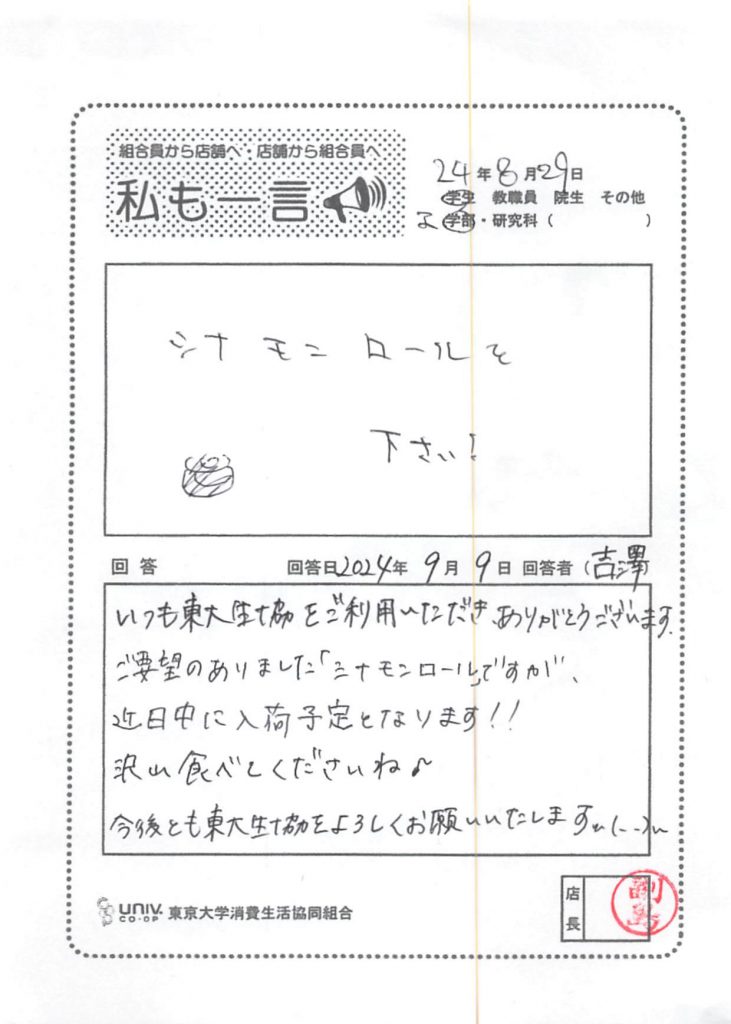 組合員から店舗へ・店舗から組合員へ
私も一言
24年8月29日
学生 教職員 院生 その他
学部・研究科（ ）
シナモンロールを
下さい!
回答 回答日2024年9月9日 回答者（吉澤）
いつも東大生協をご利用いただき、ありがとうございます。
ご要望のありました「シナモンロール」ですが、
近日中に入荷予定となります!!
沢山食べてくださいね♪
今後とも東大生協をよろしくお願いいたします
UNIV.
CO-OP
東京大学消費生活協同組合
店長